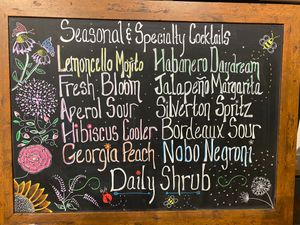 Seasonal & Specialty Cocktails
Lemoncello Mojito
Fresh Bloom
Aperol Sour
Hibiscus Cooler
Georgia Peach
Habanero Daydream
Jalapeño Margarita
Silverton Spritz
Bordeaux Sour
Nobo Negroni
Daily Shrub